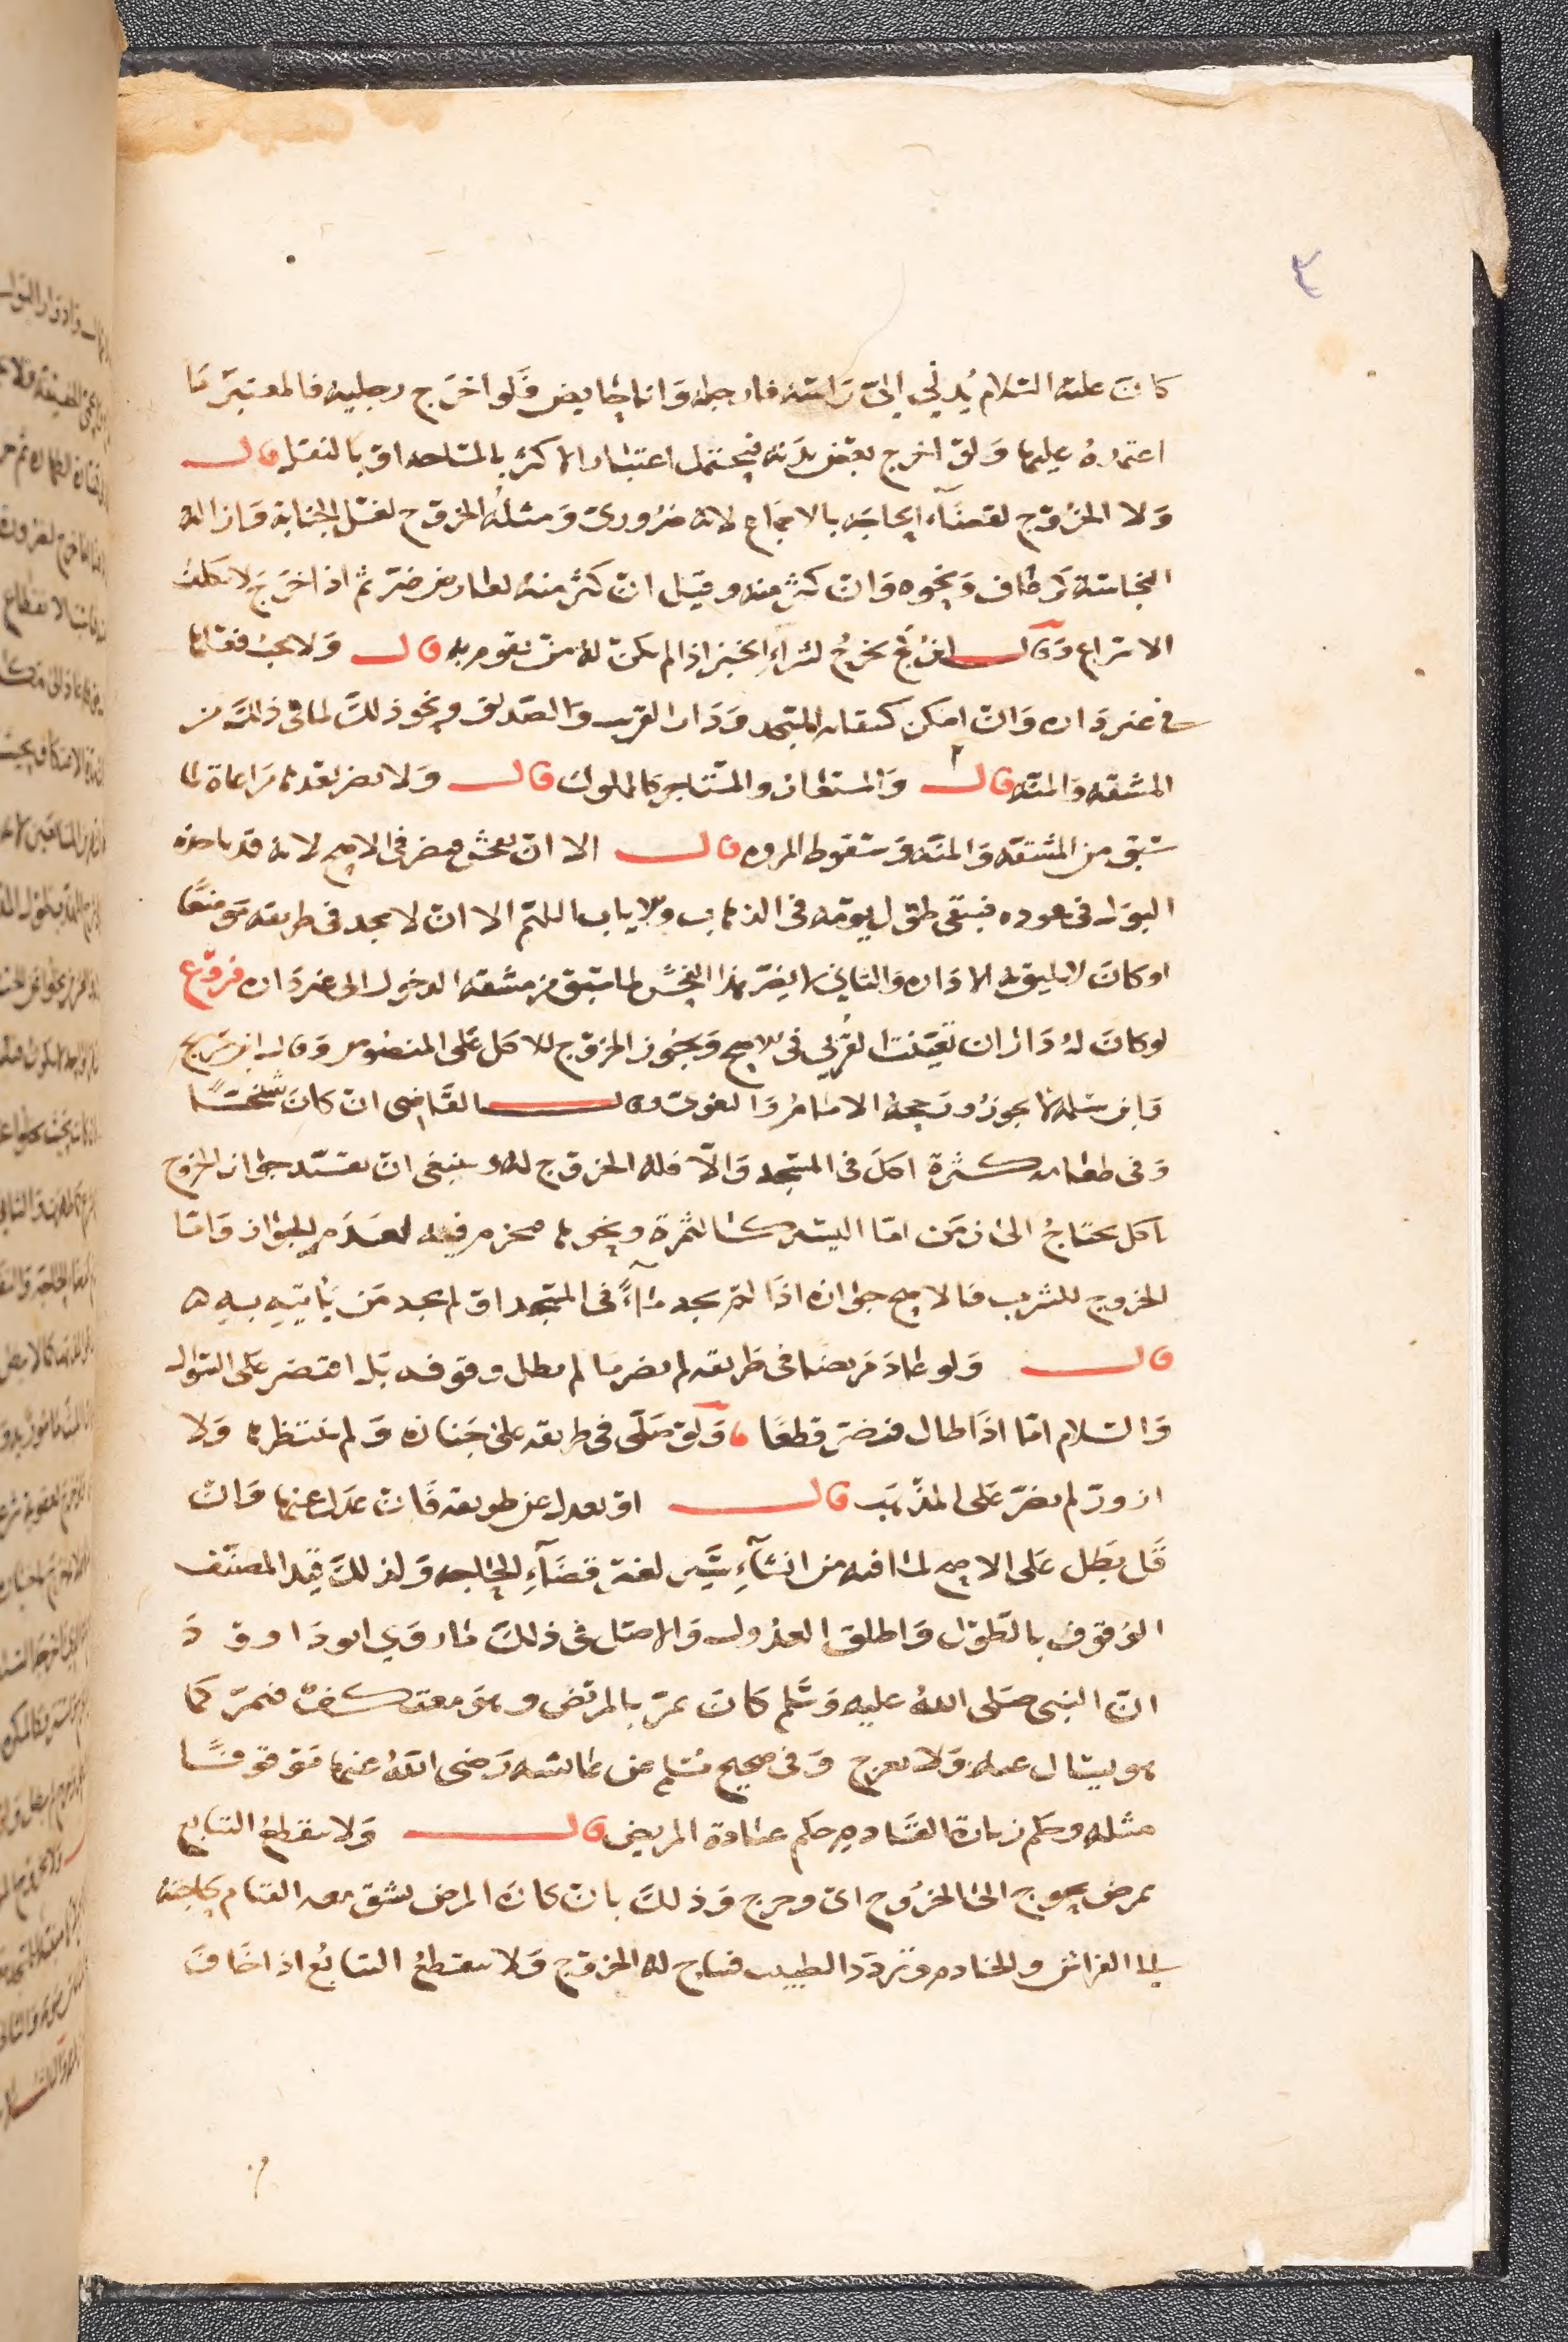 ٣
كانَ عليه السلام يُدني إليّ رَاسَه فارجله وَانا حايض فَلو اخرَج رجليه فالمعتبَر مَا
اعتمدهُ عليهما وَلوْ اخرج بعض بدَنه فيحتمل اعتبار الاكثر بالمساحه اوْ بالثقل قال
وَلا الخرُوج لقضآء الحاجَه بالاجماع لانه ضرُوري وَمثلهُ الخروج لغسْل الجنابة وَازالة
النجاسَة كرعاف وَنحوه وَان كثر منه وقيل انْ كثر منهُ لعارض ضرّ ثم اذا خرَج لا يكلف
الاسراع وَقال ابن كج يخرجُ لشراءِ الخبز اذا لم يكن لهُ منْ يقوم به قال وَلا يجبُ فعلها
في غير دَاره وَانْ امكن كسقايه المسجد وَدَار القريب وَالصَديق ونحو ذلكَ لما في ذلكَ من
المشقه وَالمنه قال وَالمستعار والمستاجر كالملوك قال وَلا يضر بُعدها مرَاعاة لما
سَبق من المشقه وَالمنّه وَسقوط المروه قال الا انْ يفحش فيضر في الاصح لانه قد ياخذه
البوَل في عوده فيبقى طوْل يومه في الذهاب والاياب اللهم الا انْ لا يجد في طريقه موضعًا
او كانَ لا يليق به الا دَاره وَالثاني لا يضرّ هذا الفحش لما سَبق من مشقه الدخول الى غير دَاره فروع
لو كانَ لهُ دَاران تعيّنت القربى في الاصح وَيجُوز الخروج للاكل عَلى المنصُوص وَقال ابن سريج
وَابن سَلمه لا يجوزُ ورَجحهُ الامامُ وَالبغوي وقال القَاضي انْ كانَ سَخيًّا
وَفي طعامه كثرة اكلَ في المسجد وَالّا فلهُ الخروج لهُ وينبغي انْ يقيّد جوَاز الخروج
باكل يحتاجُ الى زمَن امّا اليسير كالتمرة ونحوها فيجزم فيه لعدَم الجوَاز وَامّا
الخروج للشرب فالاصح جوَازه اذَا لمْ يجد مَآءً في المسجد اوْ لم يجد مَن يَأتيهِ بهِ ه
قال وَلو عادَ مَريضًا في طريقه لم يضر مَا لم يطل وقوفه بَل اقتصَر عَلى السّؤال
وَالسّلام امّا اذَا طال فيضرّ قطعًا ، وَلوْ صَلّى في طريقه على جَنازه وَلم ينتظرها وَلا
ازورّ لم يضرّ عَلى المذهَب قال اوْ يعدل عن طريقه فَان عدَل عنها وَان
قَل بَطل عَلى الاصح لما فيه من انشآءِ سَيرٍ لغير قضَآءِ الحاجه وَلذلكَ قيّد المصنّف
الوُقوف بالطّول وَاطلق العدُول وَالاصْل في ذلكَ مَا روَي ابو دَاووْ دَ
انّ النبى صَلى اللهُ عليه وَسَلم كانَ يمرّ بالمريض وهوَ معتكفٌ فيمرّ كما
هو يسْال عنه وَلا يعرج وَفي صحيح مُسْلم عن عايشَه رَضى اللهُ عنها موْقوفًا
مثله وَحكم زيارة القَادم حكم عيَادة المريض قال وَلا ينقطعُ التتَابع
بمرض يحوج الى الخرُوج اى وخرج وَذلكَ بانْ كانَ المرض يشق معه المقام لحاجته
الى الفراش والخادم وترَدّد الطبيب فيباح له الخروج وَلا ينقطعُ التتابعُ اذا خَافَ